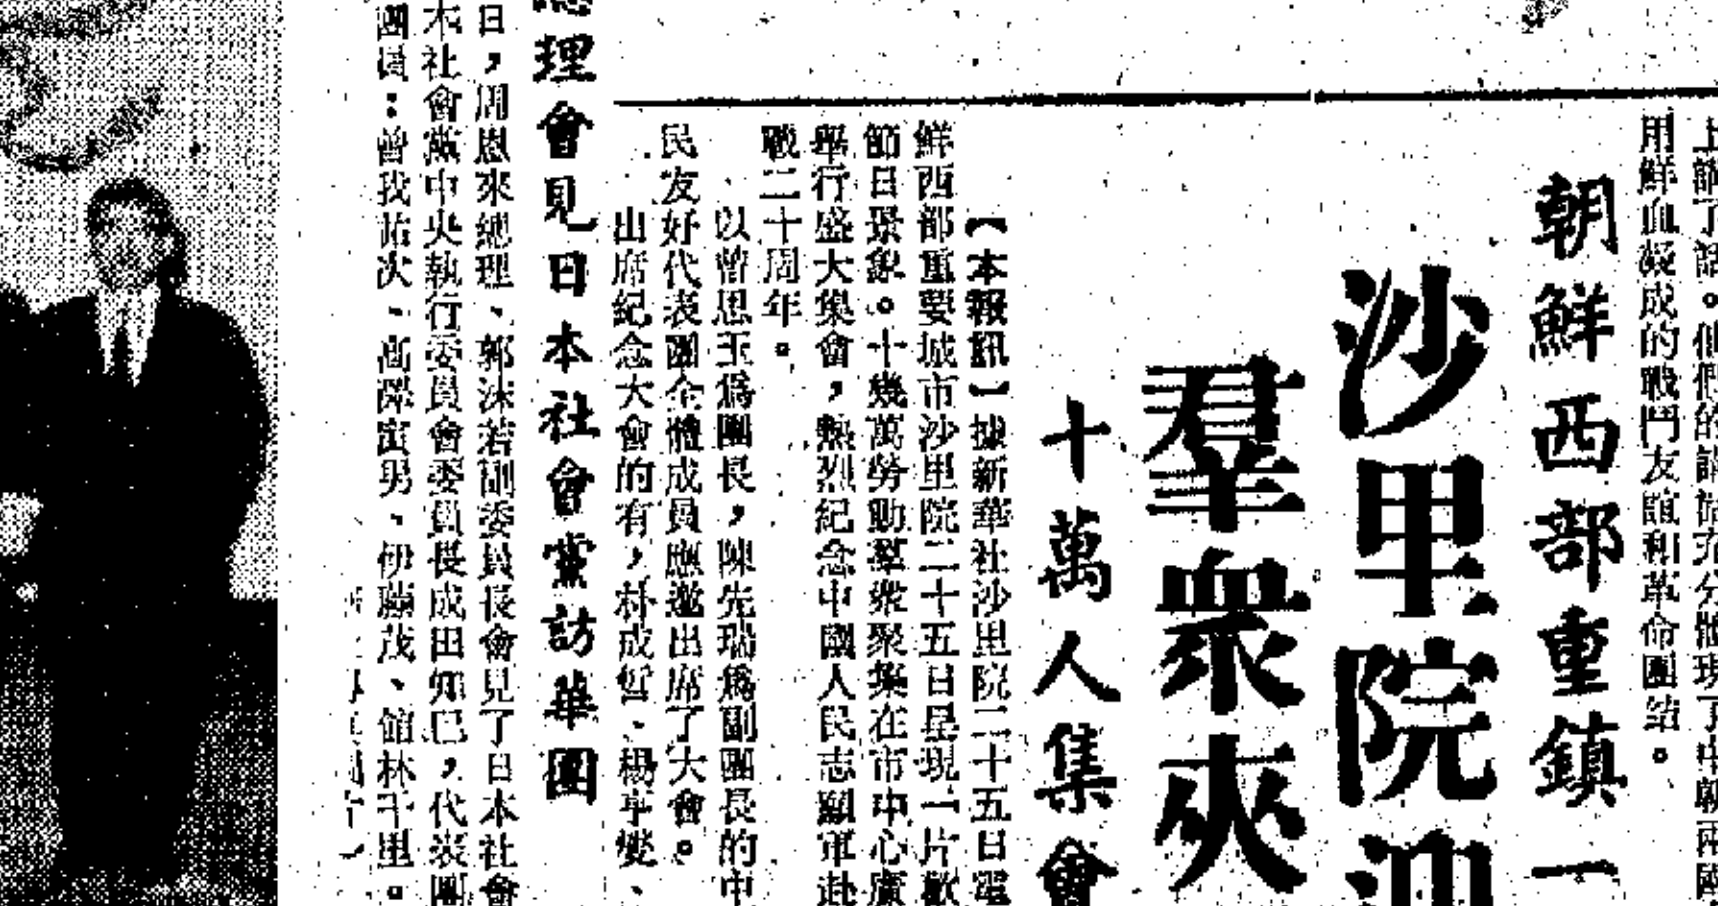 上講了話。他們的講話充分體現了中朝兩國
用鮮血凝成的戰鬥友誼和革命團結。
朝鮮西部重鎮一
沙里院迎
羣衆夾
十萬人集會
【本報訊】據新華社沙里院二十五日電
鮮西部重要城市沙里院二十五日呈現一片歡
節日景象。十幾萬勞動羣衆聚集在市中心廣
舉行盛大集會，熱烈紀念中國人民志願軍赴
戰二十周年。
以曾思玉爲團長，陳先瑞爲副團長的中
民友好代表團全體成員應邀出席了大會。
出席紀念大會的有，朴成哲、楊亨燮、
總理會見日本社會黨訪華團
日，周恩來總理、郭沫若副委員長會見了日本社會
本社會黨中央執行委員會委員長成田知巳，代表團
團員：曾我祐次、高澤寅男、伊藤茂、館林千里。